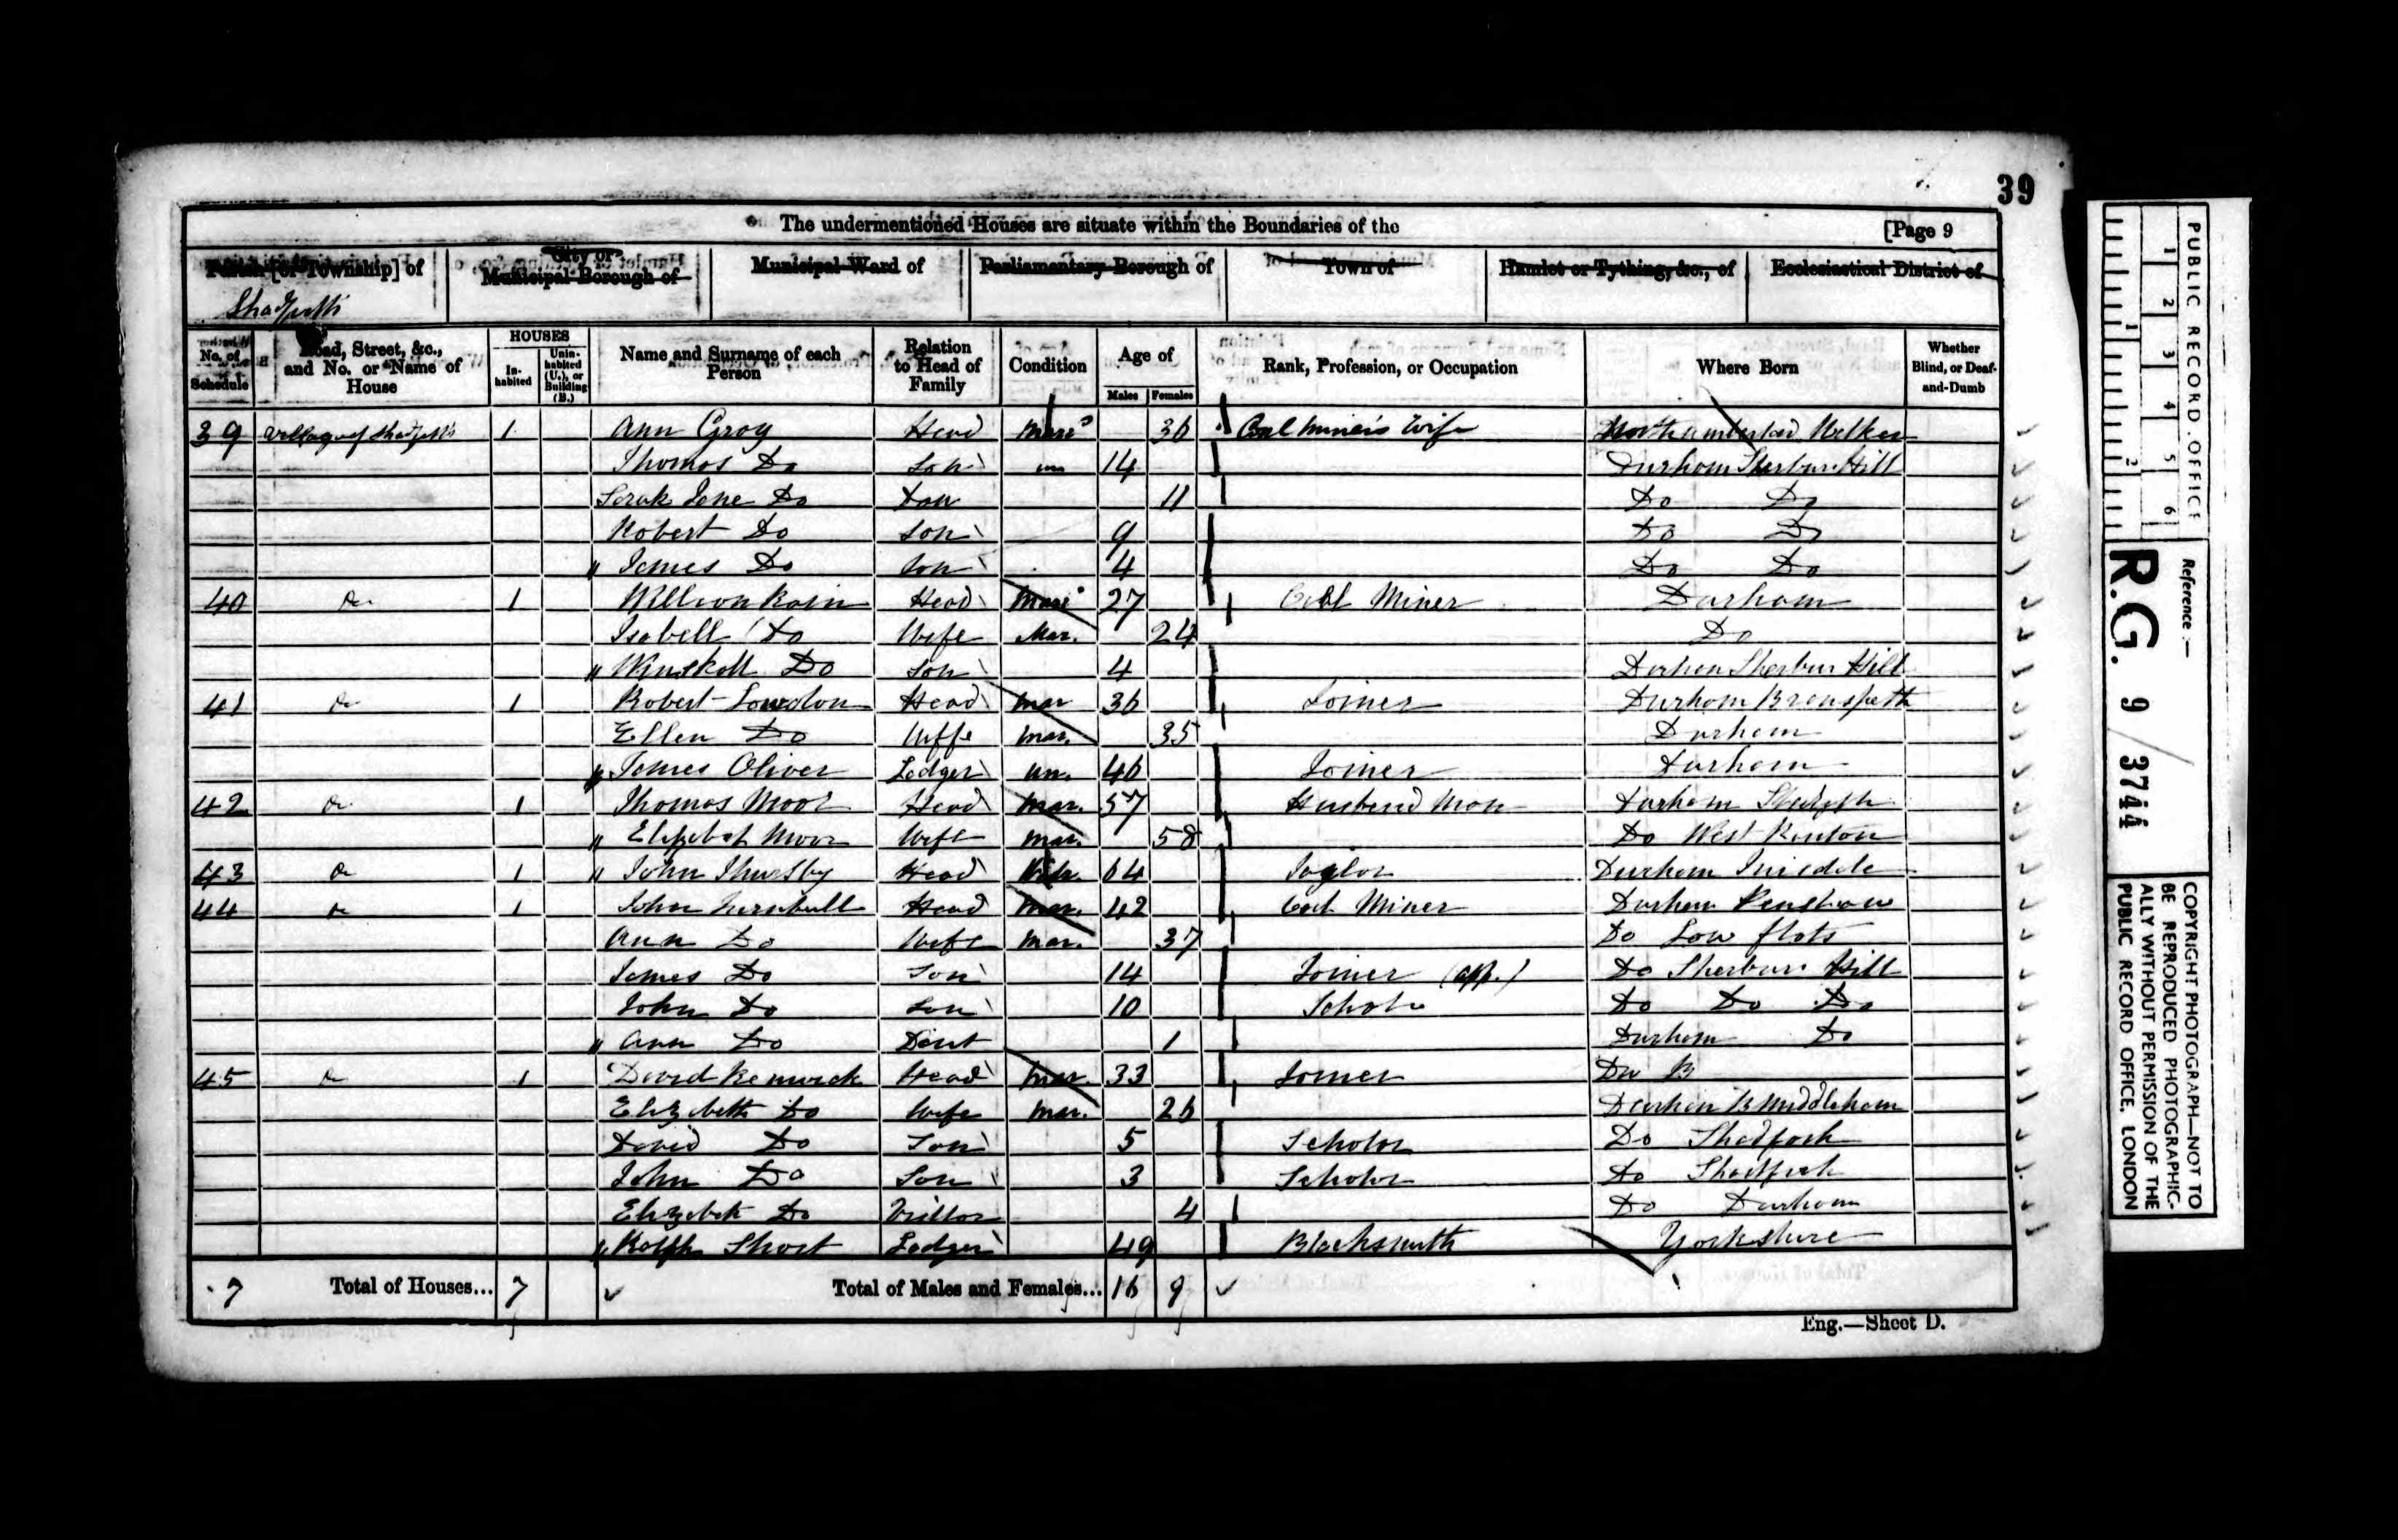 39
The undermentioned Houses are situate within the Boundaries of the [Page 9
Parish [or Township] of City or Municipal Borough of Municipal Ward of Parliamentary Borough of Town of Hamlet or Tything, &c., of Ecclesiastical District of
No. of Schedule Road, Street, &c., and No. or Name of House HOUSES Inhabited Uninhabited (U.), or Building (B.) Name and Surname of each Person Relation to Head of Family Condition Age of Males Females Rank, Profession, or Occupation Where Born Whether Blind, or Deaf-and-Dumb
39 1 Ann Gray Head 36 Coal miner's Wife
Thomas Do Son un 14 Durham Sherburn Hill
Sarah Jane Do Dau 11 Do Do
Robert Do Son 9 Do Do
" James Do Son 4 Do Do
40 Do 1 Head 27 Coal Miner Durham
Isabell Do Wife Mar. 24 Do
" Do Son 4 Durham Sherburn Hill
41 Do 1 Robert Head Mar 36 Joiner Durham
Ellen Do Wiffe Mar. 35 Durham
" James Oliver Lodger un. 46 Joiner Durham
42 Do 1 Thomas Moor Head Mar. 57 Husband Man Durham
" Moor Wife Mar. 58 Do West
43 Do 1 " John Thursby Head 64 Durham
44 Do 1 John Turnbull Head Mar. 42 Coal Miner Durham
Ann Do Wife Mar. 37 Do Low flats
James Do Son 14 Joiner (app.) Do Sherburn Hill
John Do Son 10 Do Do Do
" Ann Do 1 Durham Do
45 Do 1 David Renwick Head Mar. 33 Joiner
Elizabeth Do Wife Mar. 26 Durham B Middleham
David Do Son 5 Scholar Do
John Do Son 3 Scholar Do
Elizabeth Do 4 Do Durham
" Ralph Short Lodger 49 Blacksmith Yorkshire
7 Total of Houses... 7 Total of Males and Females... 16 9
Eng.—Sheet D.
PUBLIC RECORD OFFICE
1 2 3 4 5 6
1 2
Reference :—
R.G. 9 / 3744
COPYRIGHT PHOTOGRAPH—NOT TO
BE REPRODUCED PHOTOGRAPHIC-
ALLY WITHOUT PERMISSION OF THE
PUBLIC RECORD OFFICE. LONDON